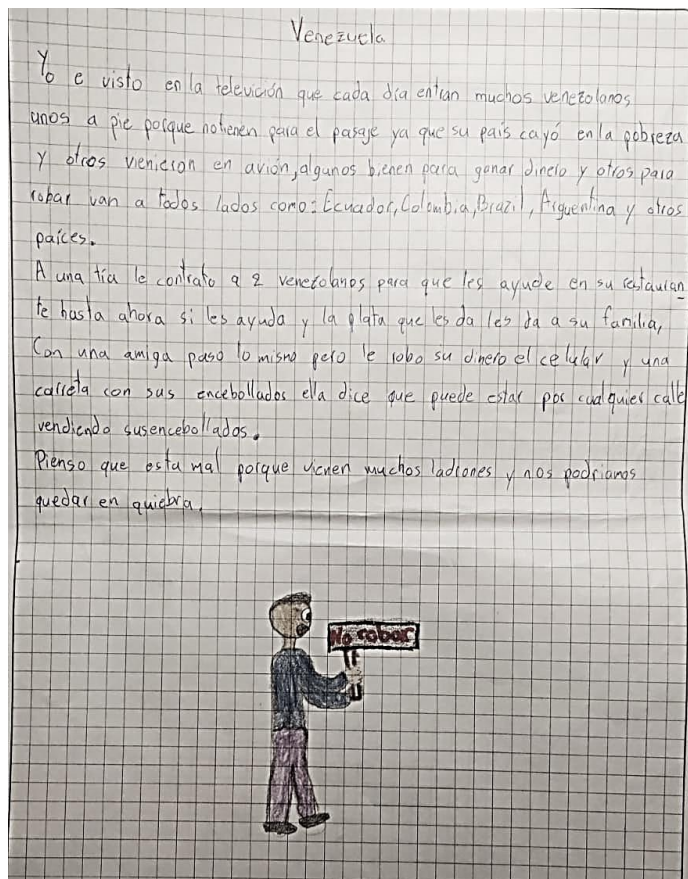 Venezuela
Yo e visto en la televición que cada día entran muchos venezolanos
unos a pie porque notienen para el pasaje ya que su país cayó en la pobreza
y otros vienieron en avión, algunos bienen para ganar dinero y otros para
robar van a todos lados como: Ecuador, Colombia, Brazil, Arguentina y otros
paíces.
A una tía le contrato a 2 venezolanos para que les ayude en su restauran
te hasta ahora si les ayuda y la plata que les da les da a su familia,
Con una amiga paso lo mismo pero le robo su dinero el celular y una
carreta con sus encebollados ella dice que puede estar por cualquier calle
vendiendo susencebollados.
Pienso que esta mal porque vienen muchos ladrones y nos podriamos
quedar en quiebra.
No robar